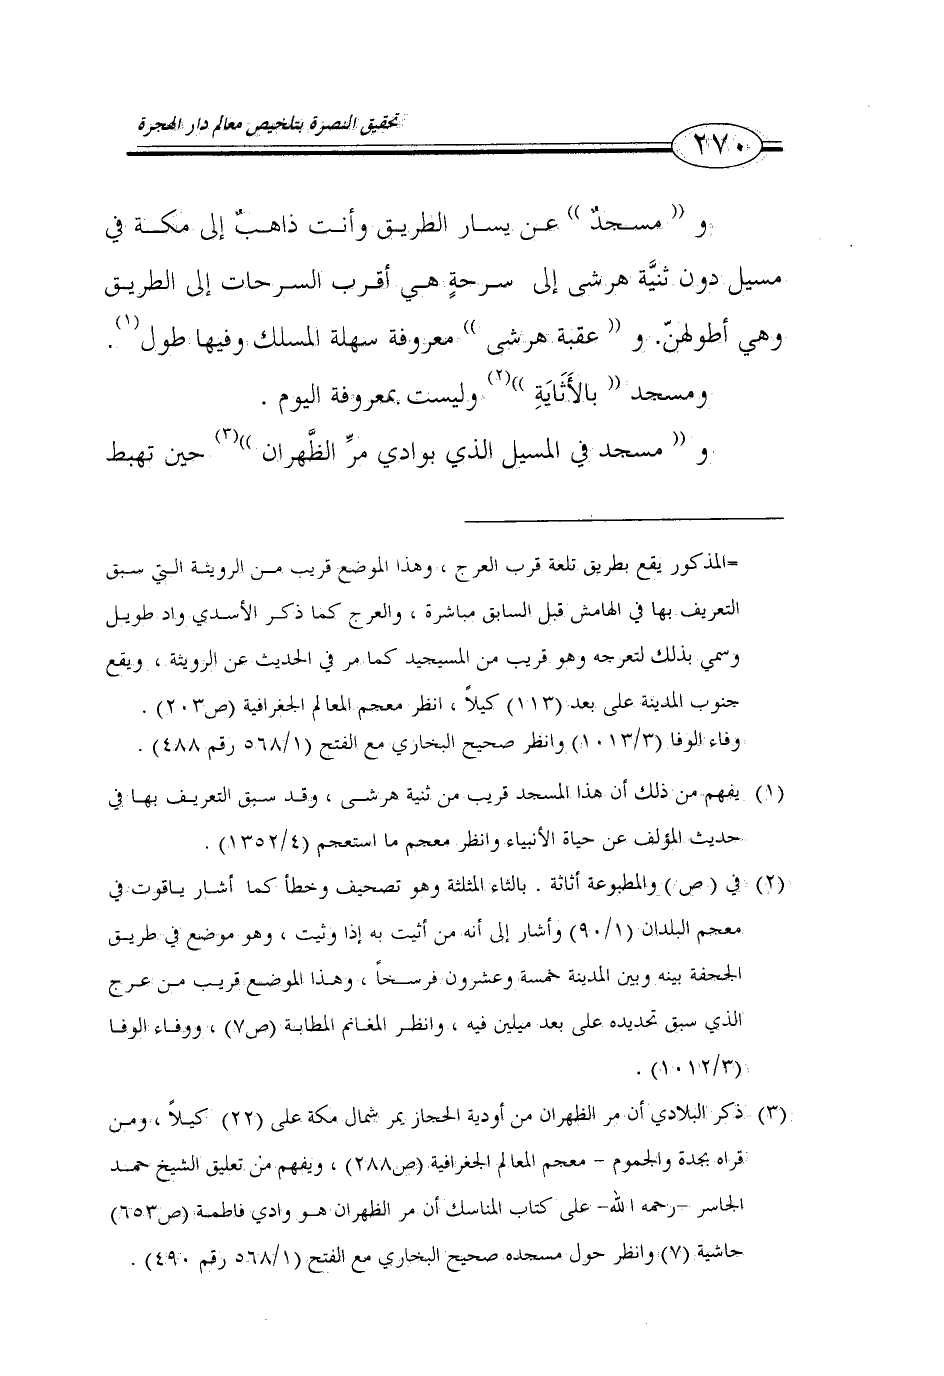 تحقيق النصرة بتلخيص معالم دار الهجرة
٢٧٠
و (( مسجدٌ )) عن يسار الطريق وأنت ذاهبٌ إلى مكة في
مسيل دون ثنيَّة هرشى إلى سرحةٍ هي أقرب السرحات إلى الطريق
وهي أطولهنّ. و (( عقبة هرشى )) معروفة سهلة المسلك وفيها طول(١).
ومسجد (( بالأَثَايَةِ ))(٢) وليست بمعروفة اليوم .
و (( مسجد في المسيل الذي بوادي مرِّ الظَّهران ))(٣) حين تهبط
=المذكور يقع بطريق تلعة قرب العرج ، وهذا الموضع قريب من الرويثة التي سبق
التعريف بها في الهامش قبل السابق مباشرة ، والعرج كما ذكر الأسدي واد طويل
وسمي بذلك لتعرجه وهو قريب من المسيجيد كما مر في الحديث عن الرويثة ، ويقع
جنوب المدينة على بعد (١١٣) كيلاً ، انظر معجم المعالم الجغرافية (ص٢٠٣) .
وفاء الوفا (١٠١٣/٣) وانظر صحيح البخاري مع الفتح (٥٦٨/١ رقم ٤٨٨) .
(١) يفهم من ذلك أن هذا المسجد قريب من ثنية هرشى ، وقد سبق التعريف بها في
حديث المؤلف عن حياة الأنبياء وانظر معجم ما استعجم (١٣٥٢/٤) .
(٢) في (ص) والمطبوعة أثاثة . بالثاء المثلثة وهو تصحيف وخطأ كما أشار ياقوت في
معجم البلدان (٩٠/١) وأشار إلى أنه من أثيت به إذا وثيت ، وهو موضع في طريق
الجحفة بينه وبين المدينة خمسة وعشرون فرسخاً ، وهذا الموضع قريب من عرج
الذي سبق تحديده على بعد ميلين فيه ، وانظر المغانم المطابة (ص٧) ، ووفاء الوفا
(١٠١٢/٣) .
(٣) ذكر البلادي أن مر الظهران من أودية الحجاز يمر شمال مكة على (٢٢) كيلاً ، ومن
قراه بجدة والجموم – معجم المعالم الجغرافية (ص٢٨٨) ، ويفهم من تعليق الشيخ حمد
الجاسر –رحمه الله– على كتاب المناسك أن مر الظهران هو وادي فاطمة (ص٦٥٣)
حاشية (٧) وانظر حول مسجده صحيح البخاري مع الفتح (٥٦٨/١ رقم ٤٩٠) .